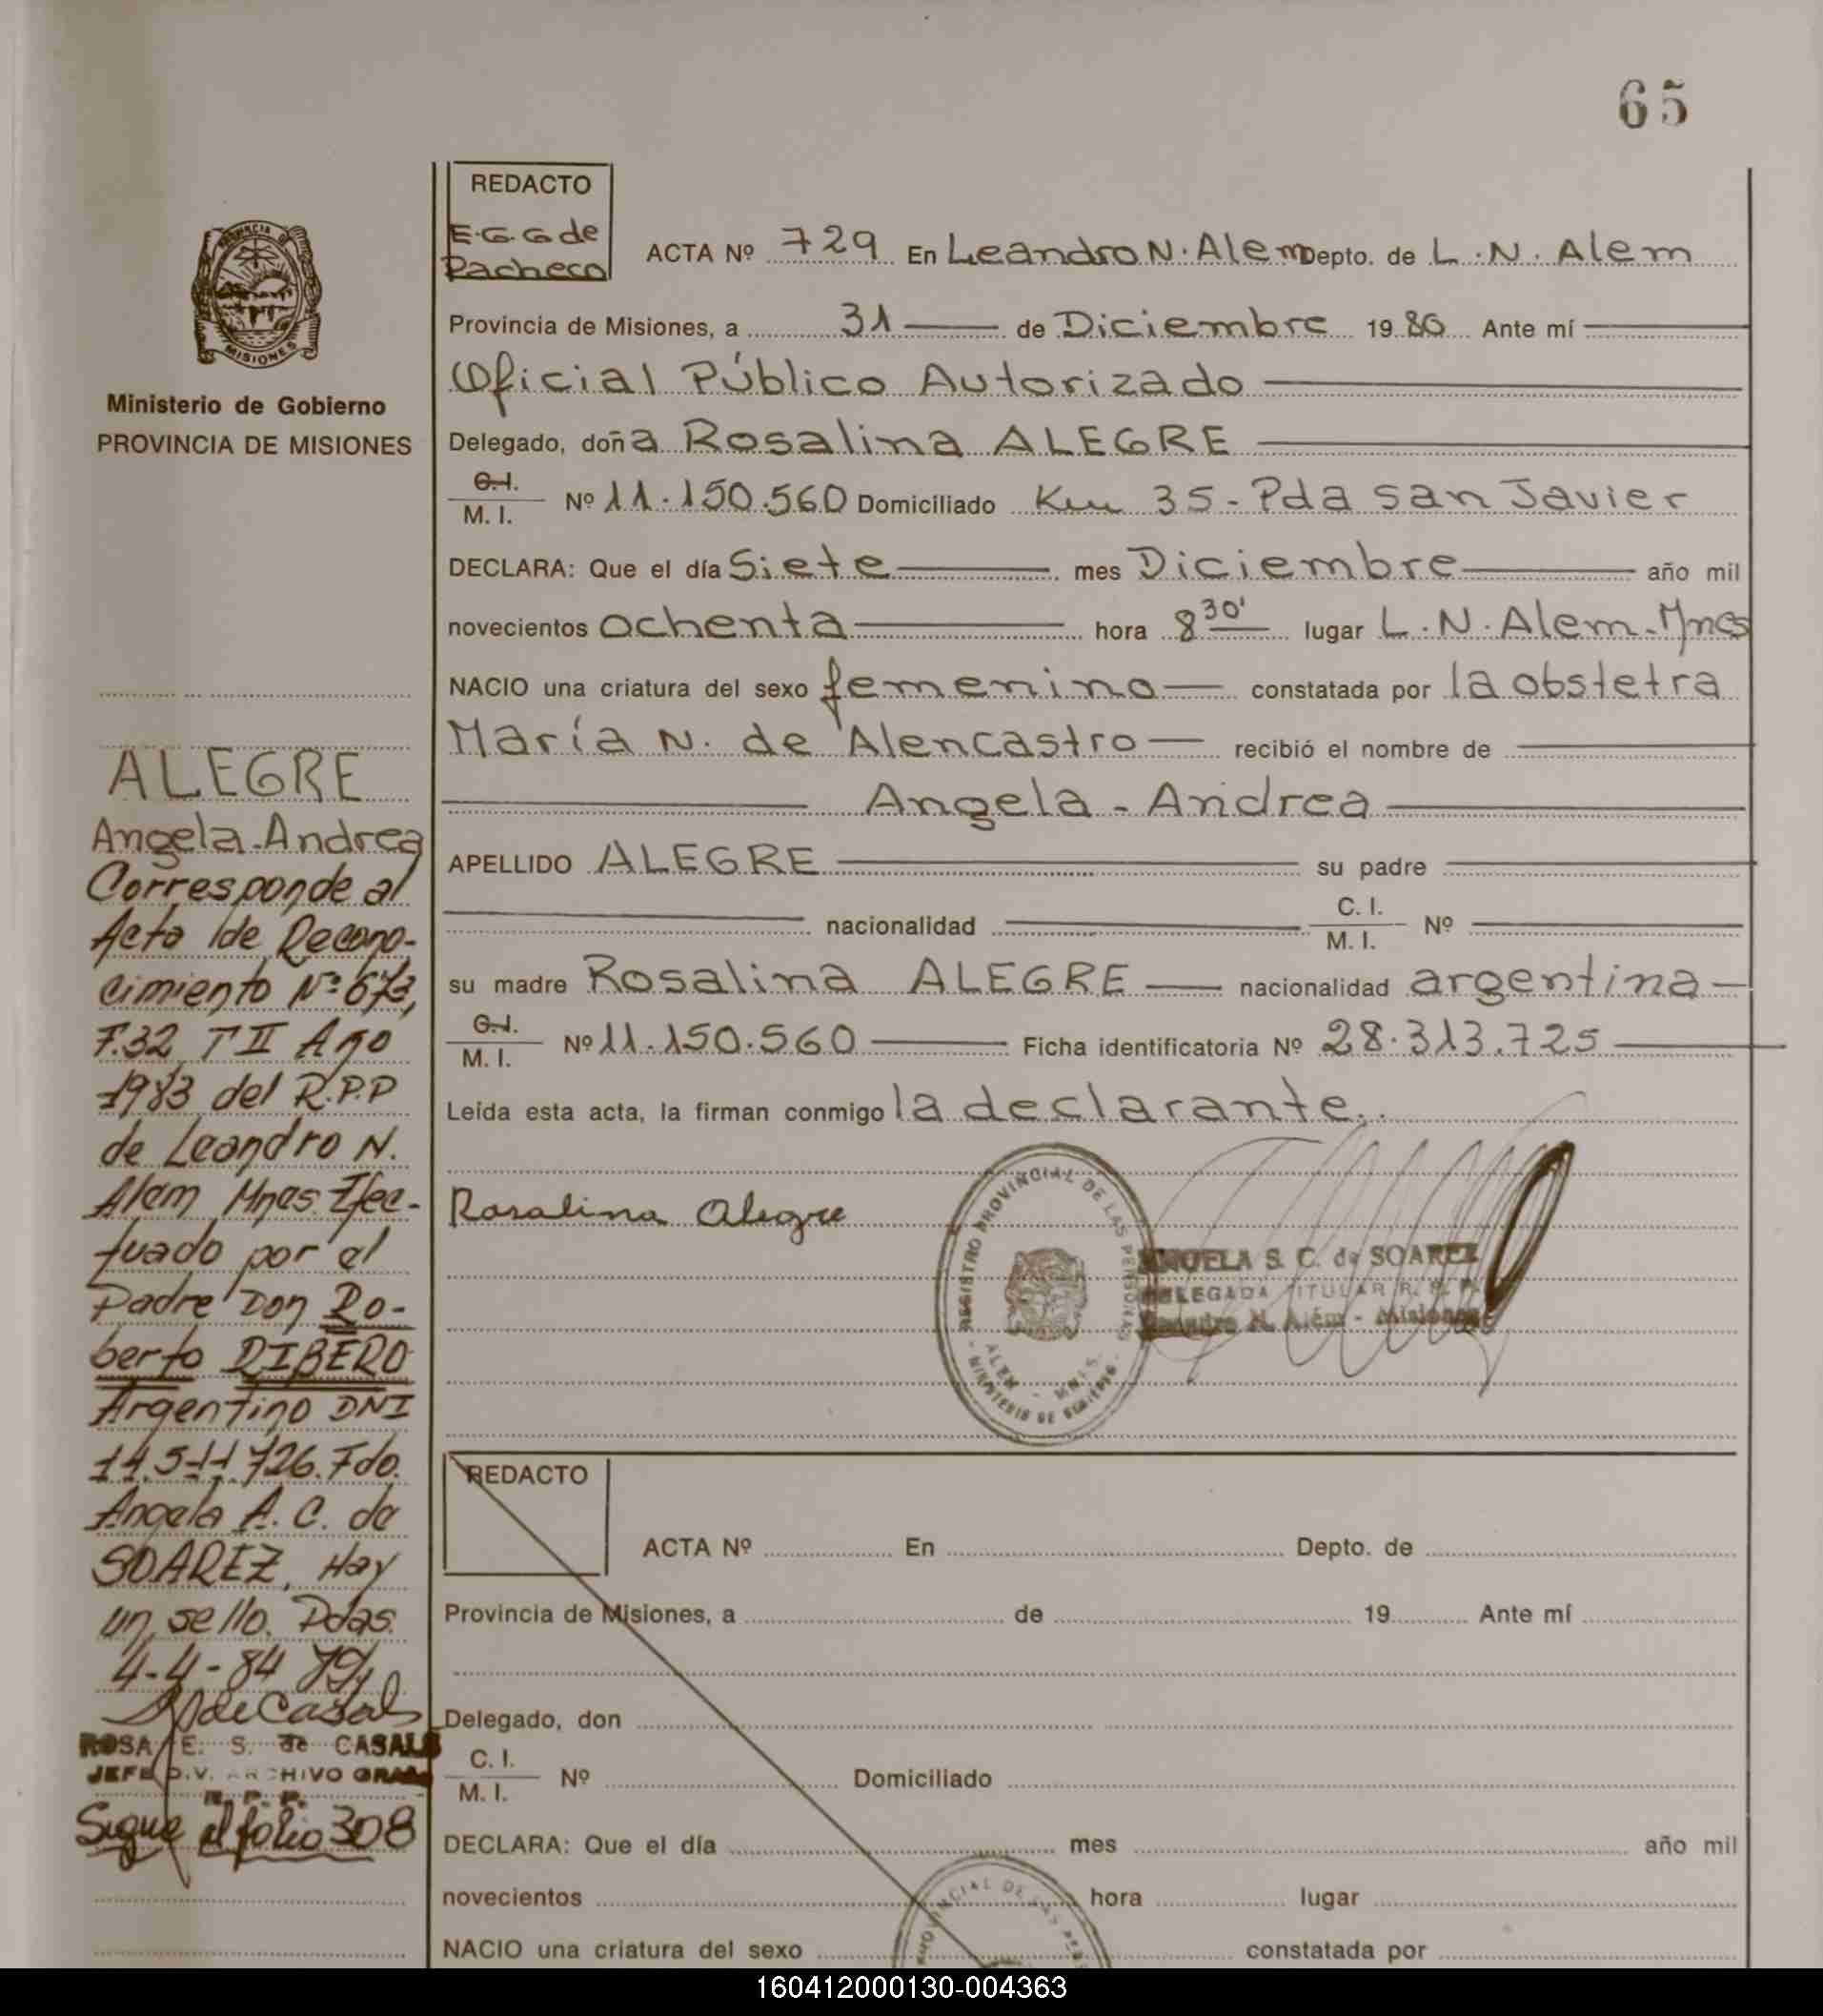 65
REDACTO
E.G.G de
Pacheco
ACTA Nº 729 En Leandro N. Alem Depto. de L.N. Alem
Provincia de Misiones, a 31 de Diciembre 1980 Ante mí
Oficial Público Autorizado
Delegado, doña Rosalina ALEGRE
C.I.
M. I. Nº 11.150.560 Domiciliado Km 35 - Pda San Javier
DECLARA: Que el día Siete mes Diciembre año mil
novecientos ochenta hora 8 30' lugar L.N. Alem - Mnes
NACIO una criatura del sexo femenino constatada por la obstetra
María N. de Alencastro recibió el nombre de
Angela - Andrea
APELLIDO ALEGRE su padre
nacionalidad C. I.
M. I. Nº
su madre Rosalina ALEGRE nacionalidad argentina
C.I.
M. I. Nº 11.150.560 Ficha identificatoria Nº 28.313.725
Leída esta acta, la firman conmigo la declarante.
Rosalina Alegre
REGISTRO PROVINCIAL DE LAS PERSONAS
ALEM - MNES.
MINISTERIO DE GOBIERNO
ANGELA S. C. de SOAREZ
DELEGADA TITULAR R. P. P.
Leandro N. Além - Misiones
PROVINCIA
MISIONES
Ministerio de Gobierno
PROVINCIA DE MISIONES
ALEGRE
Angela-Andrea
Corresponde al
Acta de Recono-
cimiento Nº 673,
F.32 T II Año
1983 del R.P.P
de Leandro N.
Alem Mnes. Efec-
tuado por el
Padre Don Ro-
berto RIBERO
Argentino DNI
14.511.726. Fdo.
Angela A. C. de
SOAREZ. Hay
un sello. Pdas.
4-4-84
de Casals
ROSA E. S. de CASALS
JEFE DIV. ARCHIVO GRAL
R. P. P.
Sigue al folio 308
REDACTO
ACTA Nº En Depto. de
Provincia de Misiones, a de 19 Ante mí
Delegado, don
C. I.
M. I. Nº Domiciliado
DECLARA: Que el día mes año mil
novecientos hora lugar
NACIO una criatura del sexo constatada por
160412000130-004363